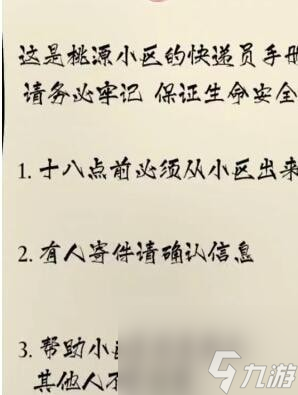 这是桃源小区的快递员手册
请务必牢记 保证生命安全
1. 十八点前必须从小区出来
2. 有人寄件请确认信息
3. 帮助小
其他人
九游